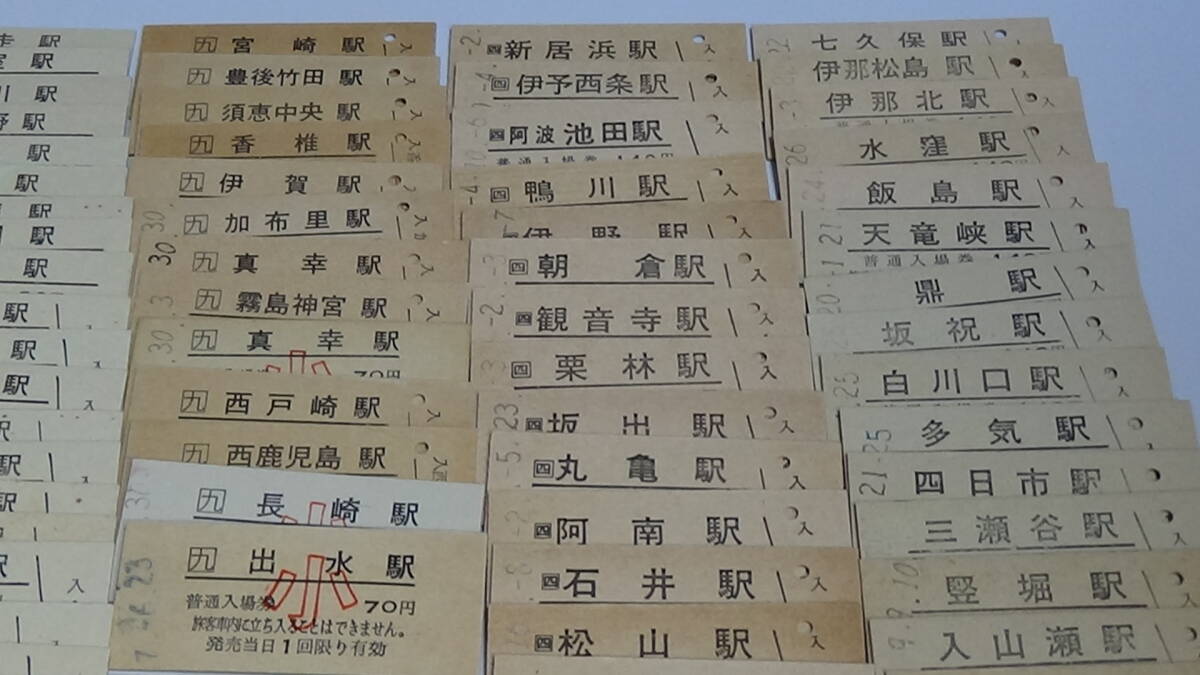 駅
駅
川 駅
野駅
駅
駅
駅
駅
駅
駅
駅
駅
駅
駅
駅
駅
入
九 宮崎駅
九 豊後竹田駅
九 須恵中央駅
九 香椎駅
九 伊賀駅
九 加布里駅
九 真幸駅
九 霧島神宮駅
九 真幸駅
70円
九 西戸崎駅
九 西鹿児島駅
九 長崎駅
小
九 出水駅
小
普通入場券 70円
旅客車内に立ち入ることはできません。
発売当日1回限り有効
四 新居浜駅 入
四 伊予西条駅 入
四 阿波池田駅 入
普通入場券 140円
四 鴨川駅 入
伊野駅
四 朝倉駅 入
四 観音寺駅 入
四 栗林駅 入
四 坂出駅 入
四 丸亀駅 入
四 阿南駅 入
四 石井駅 入
四 松山駅 入
七久保駅
伊那松島駅
伊那北駅 入
水窪駅 入
飯島駅 入
天竜峡駅 入
普通入場券
鼎駅 入
坂祝駅 入
白川口駅 入
多気駅 入
四日市駅
三瀬谷駅 入
竪堀駅 入
入山瀬駅 入